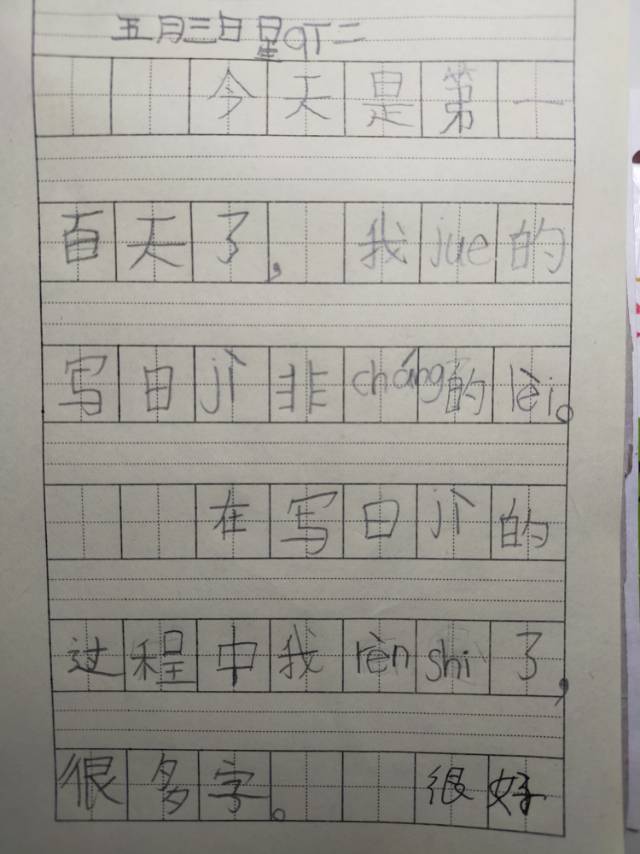 五月三日星qT二
今天是第一
百天了,我jue的
写日jì非cháng的lèi。
在写日jì的
过程中我rèn shi了,
很多字。 很好